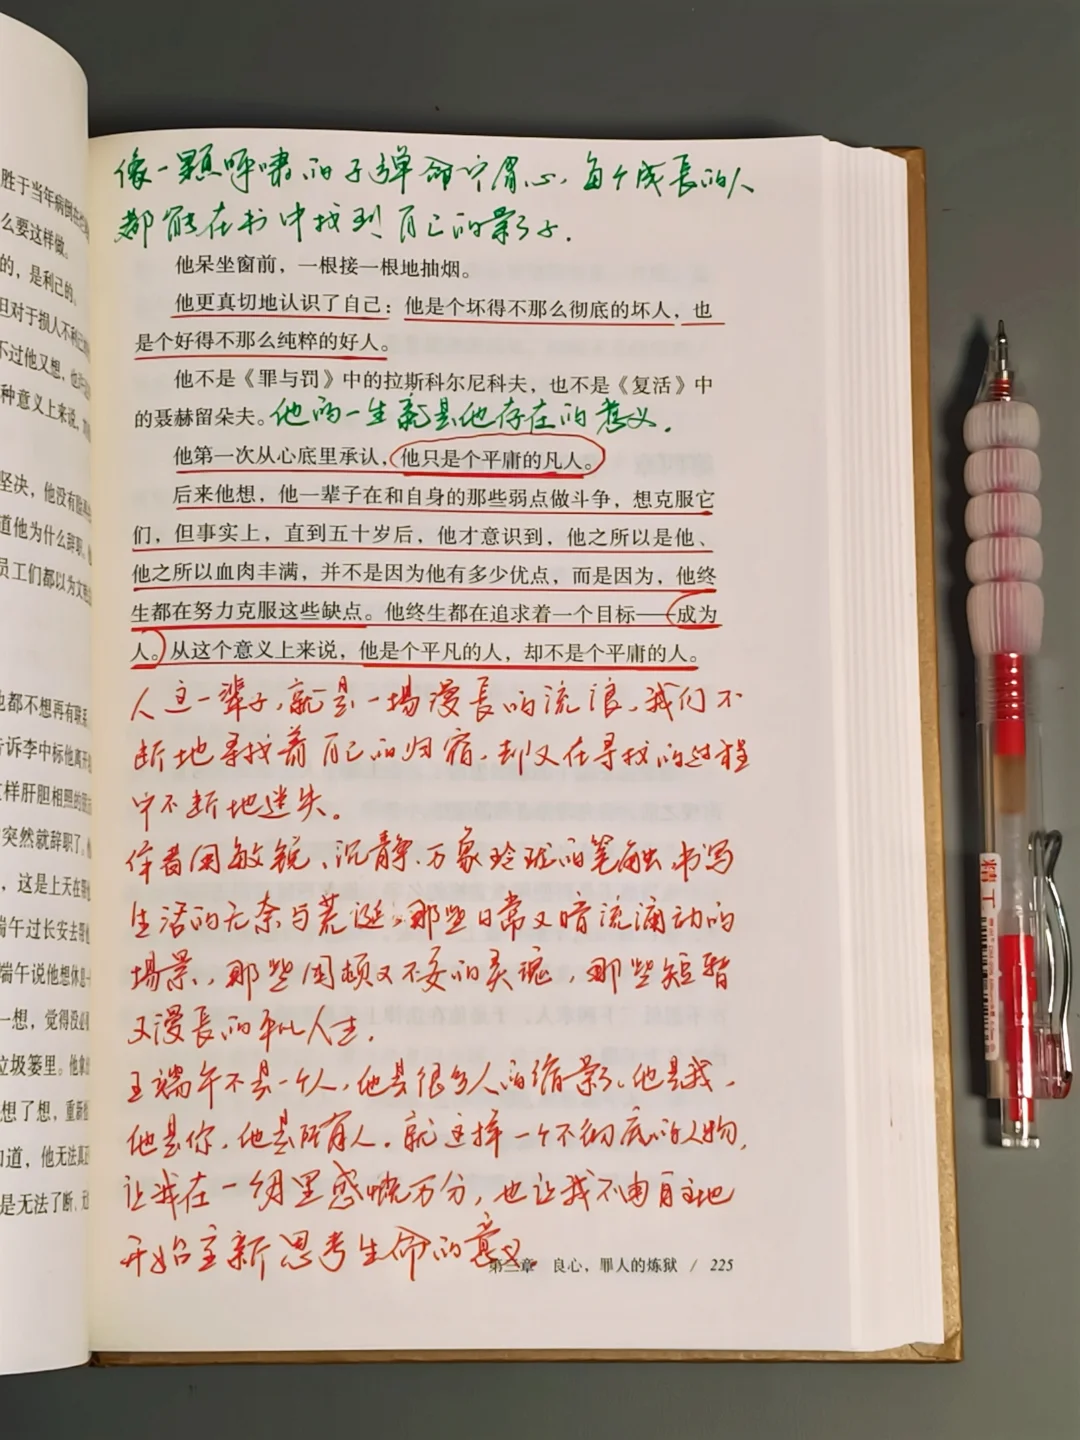 胜于当年病倒在
么要这样做。
的，是利己的。
但对于损人不利己
不过他又想，他
种意义上来说，
坚决，他没有
道他为什么辞职。
员工们都以为文
也都不想再有联系
告诉李中标他离开
这样肝胆相照的
突然就辞职了。
，这是上天在
端午过长安去
端午说他想休息一
一想，觉得没必
垃圾篓里。他拿
想了想，重新
知道，他无法真正
是无法了断，
像一颗呼啸的子弹命中眉心，每个成長的人
都能在书中找到自己的影子.
他呆坐窗前，一根接一根地抽烟。
他更真切地认识了自己：他是个坏得不那么彻底的坏人，也
是个好得不那么纯粹的好人。
他不是《罪与罚》中的拉斯科尔尼科夫，也不是《复活》中
的聂赫留朵夫。他的一生就是他存在的意义.
他第一次从心底里承认，他只是个平庸的凡人。
后来他想，他一辈子在和自身的那些弱点做斗争，想克服它
们，但事实上，直到五十岁后，他才意识到，他之所以是他、
他之所以血肉丰满，并不是因为他有多少优点，而是因为，他终
生都在努力克服这些缺点。他终生都在追求着一个目标——成为
人。从这个意义上来说，他是个平凡的人，却不是个平庸的人。
人这一辈子，就是一場漫長的流浪，我们不
断地寻找着自己的归宿，却又在寻找的过程
中不断地迷失。
作者用敏锐、沉静、万象玲珑的笔触书写
生活的无奈与荒诞，那些日常又暗流涌动的
場景，那些困顿又不安的灵魂，那些短暂
又漫長的平凡人生.
王端午不是一个人，他是很多人的缩影。他是我，
他是你，他是所有人. 就这样一个不彻底的人物，
让我在一夕间里感慨万分，也让我不由自主地
开始重新思考生命的意义
第三章　良心，罪人的炼狱 / 225
精工